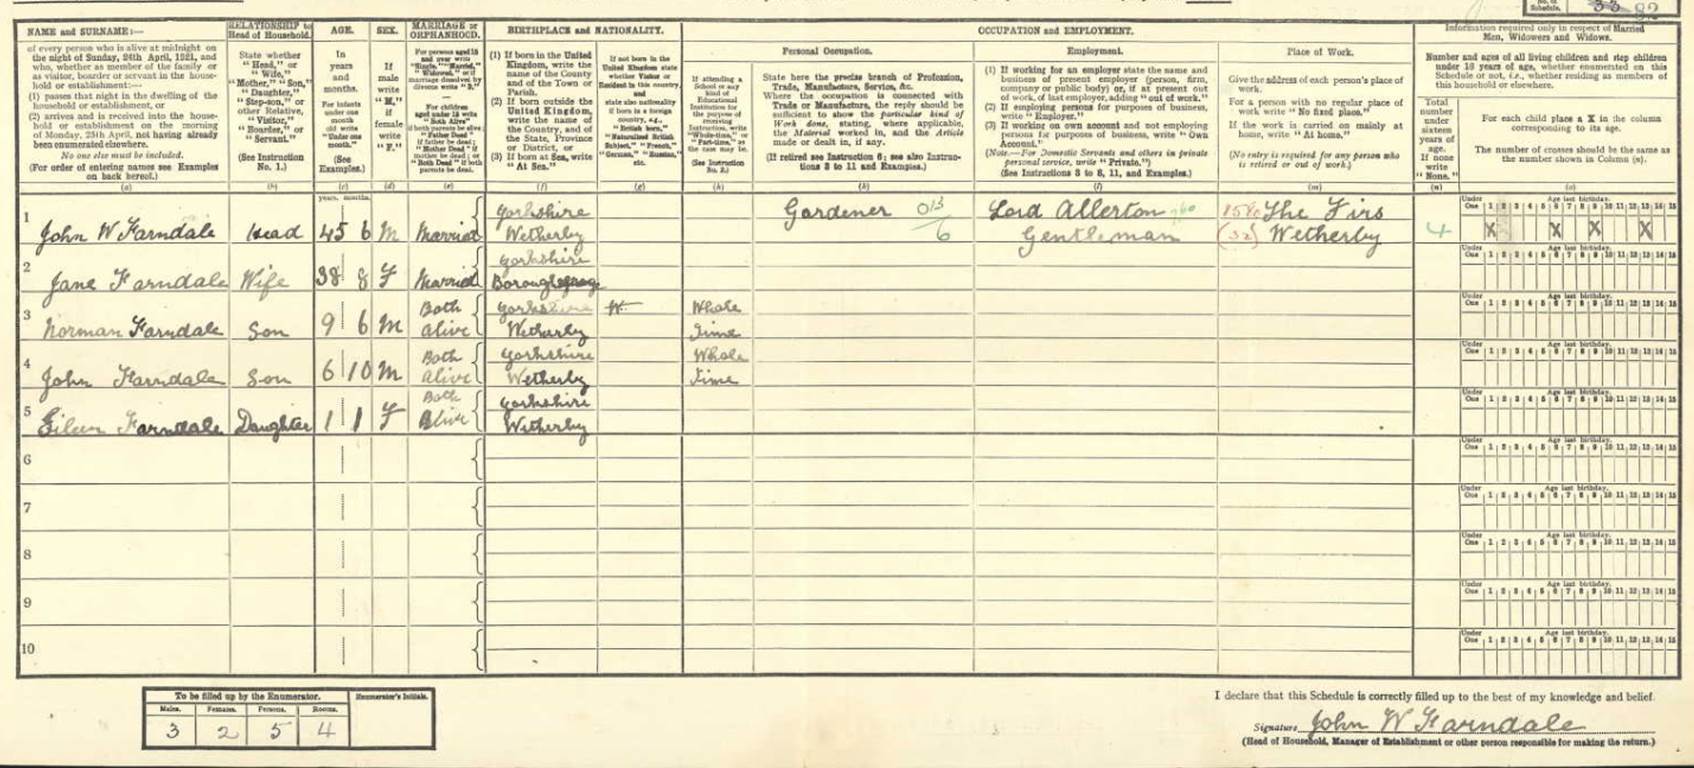 No. of Schedule. 82
NAME and SURNAME:—
of every person who is alive at midnight on
the night of Sunday, 24th April, 1921, and
who, whether as member of the family or
as visitor, boarder or servant in the house-
hold or establishment:—
(1) passes that night in the dwelling of the
household or establishment, or
(2) arrives and is received into the house-
hold or establishment on the morning
of Monday, 25th April, not having already
been enumerated elsewhere.
No one else must be included.
(For order of entering names see Examples
on back hereof.)
(a)
RELATIONSHIP to
Head of Household.
State whether
"Head," or
"Wife,"
"Mother," "Son,"
"Daughter,"
"Step-son," or
other Relative,
"Visitor,"
"Boarder," or
"Servant."
(See Instruction
No. 1.)
(b)
AGE.
In
years
and
months.
For infants
under one
month
old write
"Under one
month."
(See
Examples.)
(c)
years. months.
SEX.
If
male
write
"M,"
if
female
write
"F."
(d)
MARRIAGE or
ORPHANHOOD.
For persons aged 15
and over write
"Single," "Married,"
"Widowed," or if
marriage dissolved by
divorce write "D."
For children
aged under 15 write
"Both Alive"
if both parents be alive;
"Father Dead"
if father be dead;
"Mother Dead" if
mother be dead; or
"Both Dead" if both
parents be dead.
(e)
BIRTHPLACE and NATIONALITY.
(1) If born in the United
Kingdom, write the
name of the County
and of the Town or
Parish.
(2) If born outside the
United Kingdom,
write the name of
the Country, and of
the State, Province
or District, or
(3) If born at Sea, write
"At Sea."
(f)
If not born in the
United Kingdom state
whether Visitor or
Resident in this country,
and
state also nationality
if born in a foreign
country, e.g.,
"British born,"
"Naturalized British
Subject," "French,"
"German," "Russian,"
etc.
(g)
If attending a
School or any
kind of
Educational
Institution for
the purpose of
receiving
Instruction, write
"Whole-time," or
"Part-time," as
the case may be.
(See Instruction
No. 2.)
(h)
OCCUPATION and EMPLOYMENT.
Personal Occupation.
State here the precise branch of Profession,
Trade, Manufacture, Service, &c.
Where the occupation is connected with
Trade or Manufacture, the reply should be
sufficient to show the particular kind of
Work done, stating, where applicable,
the Material worked in, and the Article
made or dealt in, if any.
(If retired see Instruction 6; see also Instruc-
tions 3 to 11 and Examples.)
(k)
Employment.
(1) If working for an employer state the name and
business of present employer (person, firm,
company or public body) or, if at present out
of work, of last employer, adding "out of work."
(2) If employing persons for purposes of business,
write "Employer."
(3) If working on own account and not employing
persons for purposes of business, write "Own
Account."
(Note.—For Domestic Servants and others in private
personal service, write "Private.")
(See Instructions 3 to 8, 11, and Examples.)
(l)
Place of Work.
Give the address of each person's place of
work.
For a person with no regular place of
work write "No fixed place."
If the work is carried on mainly at
home, write "At home."
(No entry is required for any person who
is retired or out of work.)
(m)
Information required only in respect of Married
Men, Widowers and Widows.
Number and ages of all living children and step children
under 16 years of age, whether enumerated on this
Schedule or not, i.e., whether residing as members of
this household or elsewhere.
Total
number
under
sixteen
years of
age.
If none
write
"None."
(n)
For each child place a X in the column
corresponding to its age.
The number of crosses should be the same as
the number shown in Column (n).
(o)
1 John W Farndale Head 45 6 M Married Yorkshire Wetherby Gardener 013/6 Lord Allerton 960 Gentleman 1580 (32) The Firs Wetherby 4 X X X X
2 Jane Farndale Wife 38 8 F Married Yorkshire
3 Norman Farndale Son 9 6 M Both alive Yorkshire Wetherby Whole Time
4 John Farndale Son 6 10 M Both alive Yorkshire Wetherby Whole Time
5 Eileen Farndale Daughter 1 1 F Both Alive Yorkshire Wetherby
6
7
8
9
10
Under One 1 2 3 4 5 6 7 8 9 10 11 12 13 14 15
Age last birthday.
To be filled up by the Enumerator.
Males. Females. Persons. Rooms. Enumerator's Initials.
3 2 5 4
I declare that this Schedule is correctly filled up to the best of my knowledge and belief.
Signature John W Farndale
(Head of Household, Manager of Establishment or other person responsible for making the return.)